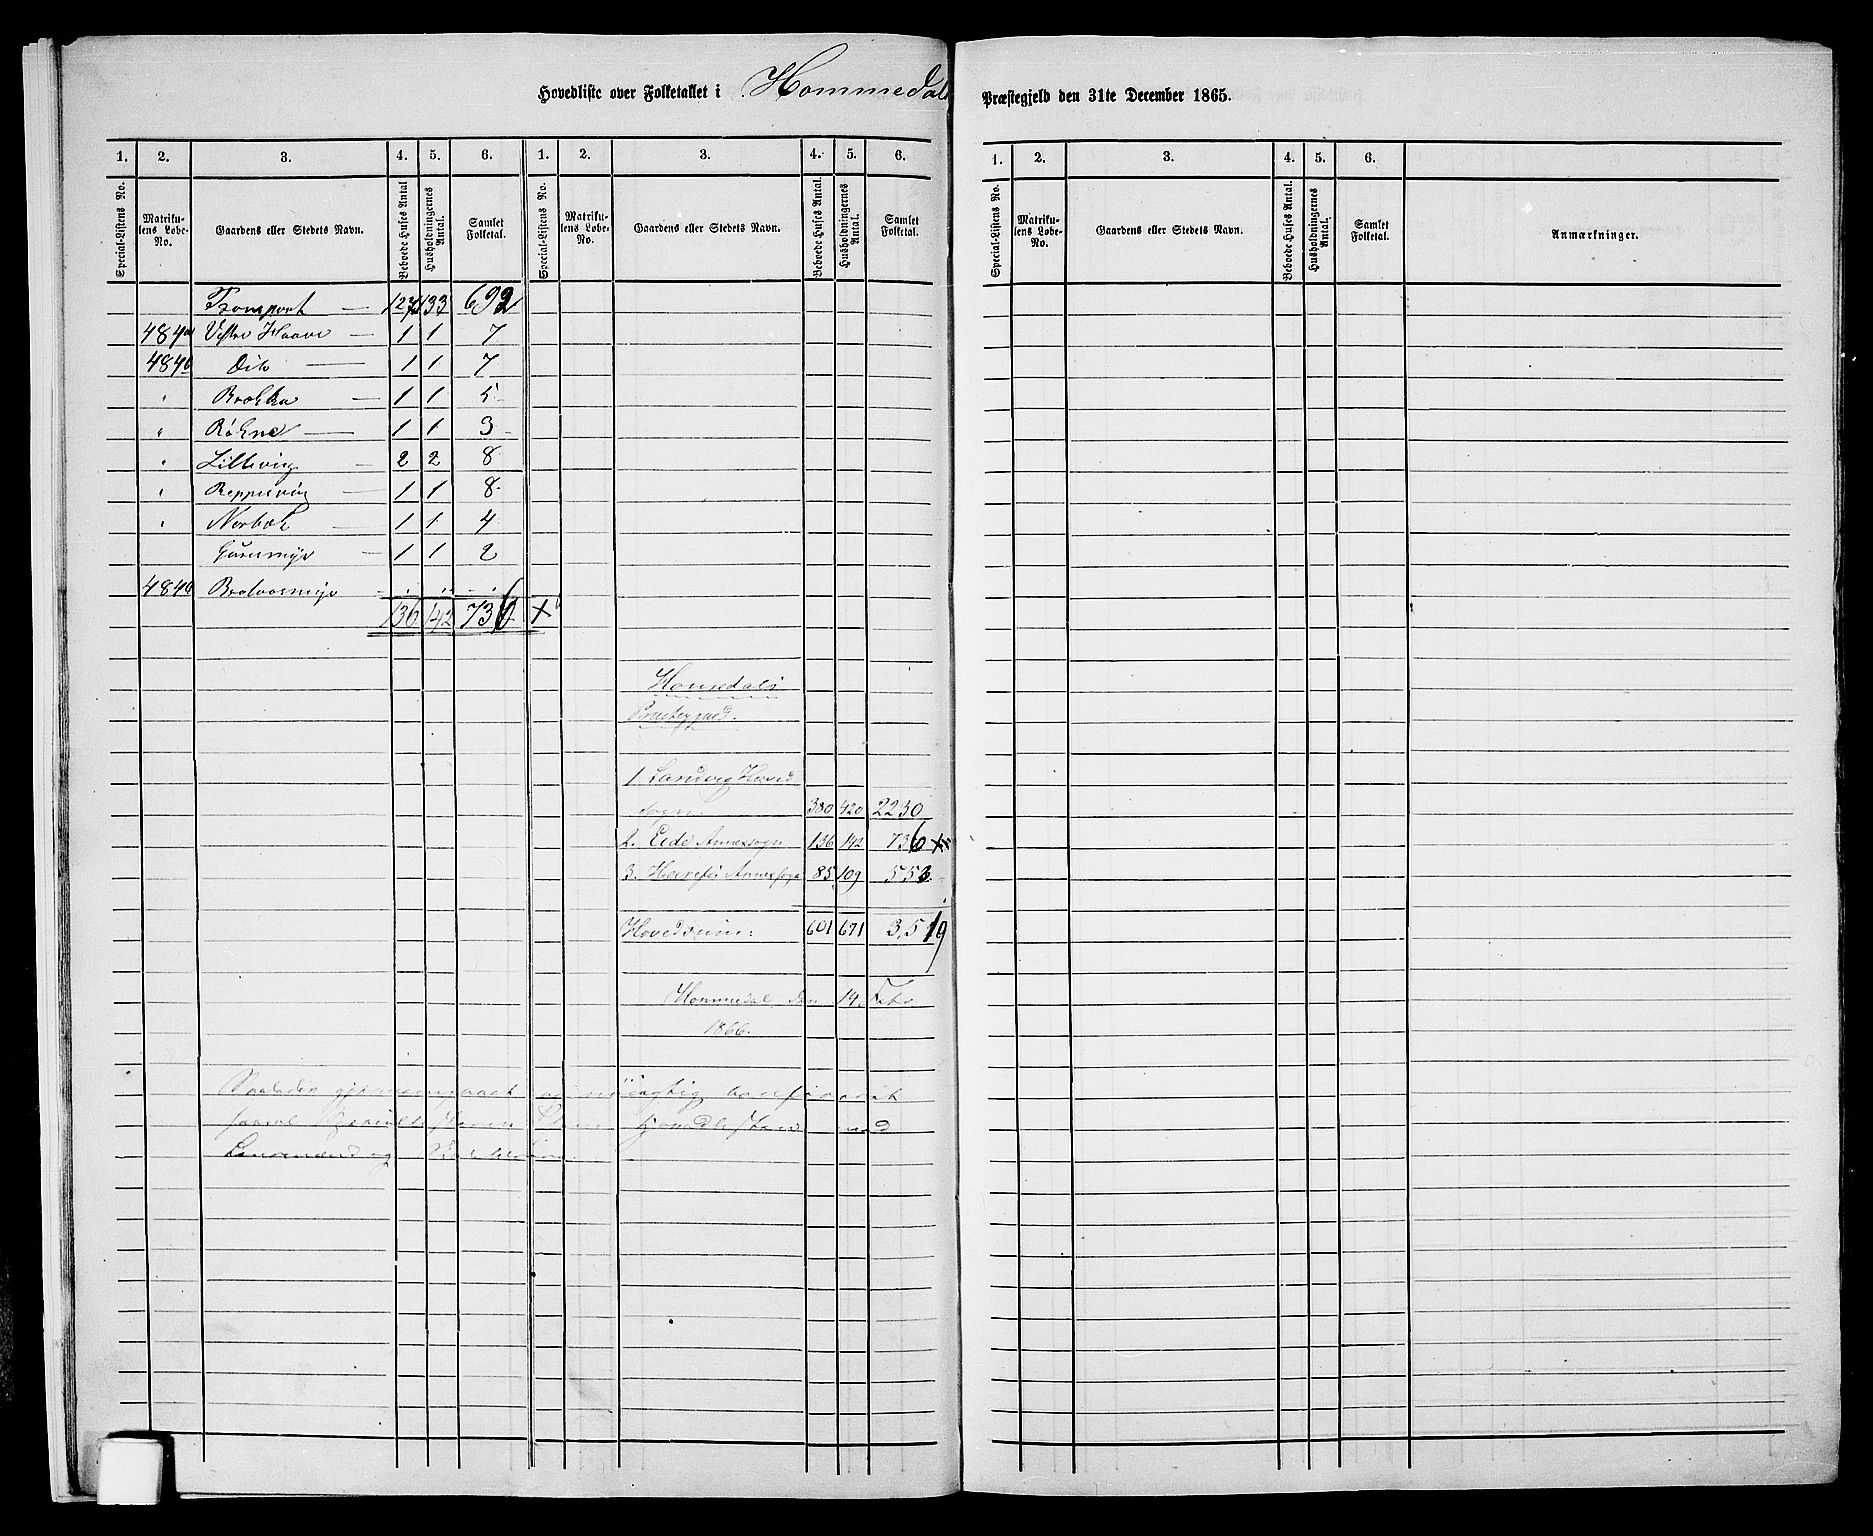 Hovedliste over Folketallet i Hommedals Præstegjeld den 31te December 1865.
1. 2. 3. 4. 5. 6. 1. 2. 3. 4. 5. 6. 1. 2. 3. 4. 5. 6.
Special-Listens No. Matrikulens Løbe-No. Gaardens eller Stedets Navn. Beboede Huses Antal Husholdningernes Antal. Samlet Folketal. Special-Listens No. Matrikulens Løbe-No. Gaardens eller Stedets Navn. Beboede Huses Antal. Husholdningernes Antal. Samlet Folketal. Special-Listens No. Matrikulens Løbe-No. Gaardens eller Stedets Navn. Beboede Huses Antal. Husholdningernes Antal. Samlet Folketal. Anmærkninger.
Transport — 127 133 692
484a Vestre Haave — 1 1 7
484b Dito — 1 1 7
" Brække — 1 1 5
" Røkne — 1 1 3
" Lillevig — 2 2 8
" Reppesvig — 1 1 8
" Norbæk — 1 1 4
Guremyr — 1 1 2
484b
136 142 736 +
Homedals
Præstegjæld.
1. Landvig Hoved
sogn 380 420 2230
2. Eide Annexsogn 136 142 736 +
3. Herefos Annexsogn 85 109 553
Hovedsum: 601 671 3,519
Hommedal den 19. Febr
1866.
Saaledes gjennemgaaet og nøiagtig
med
Lensmænd og